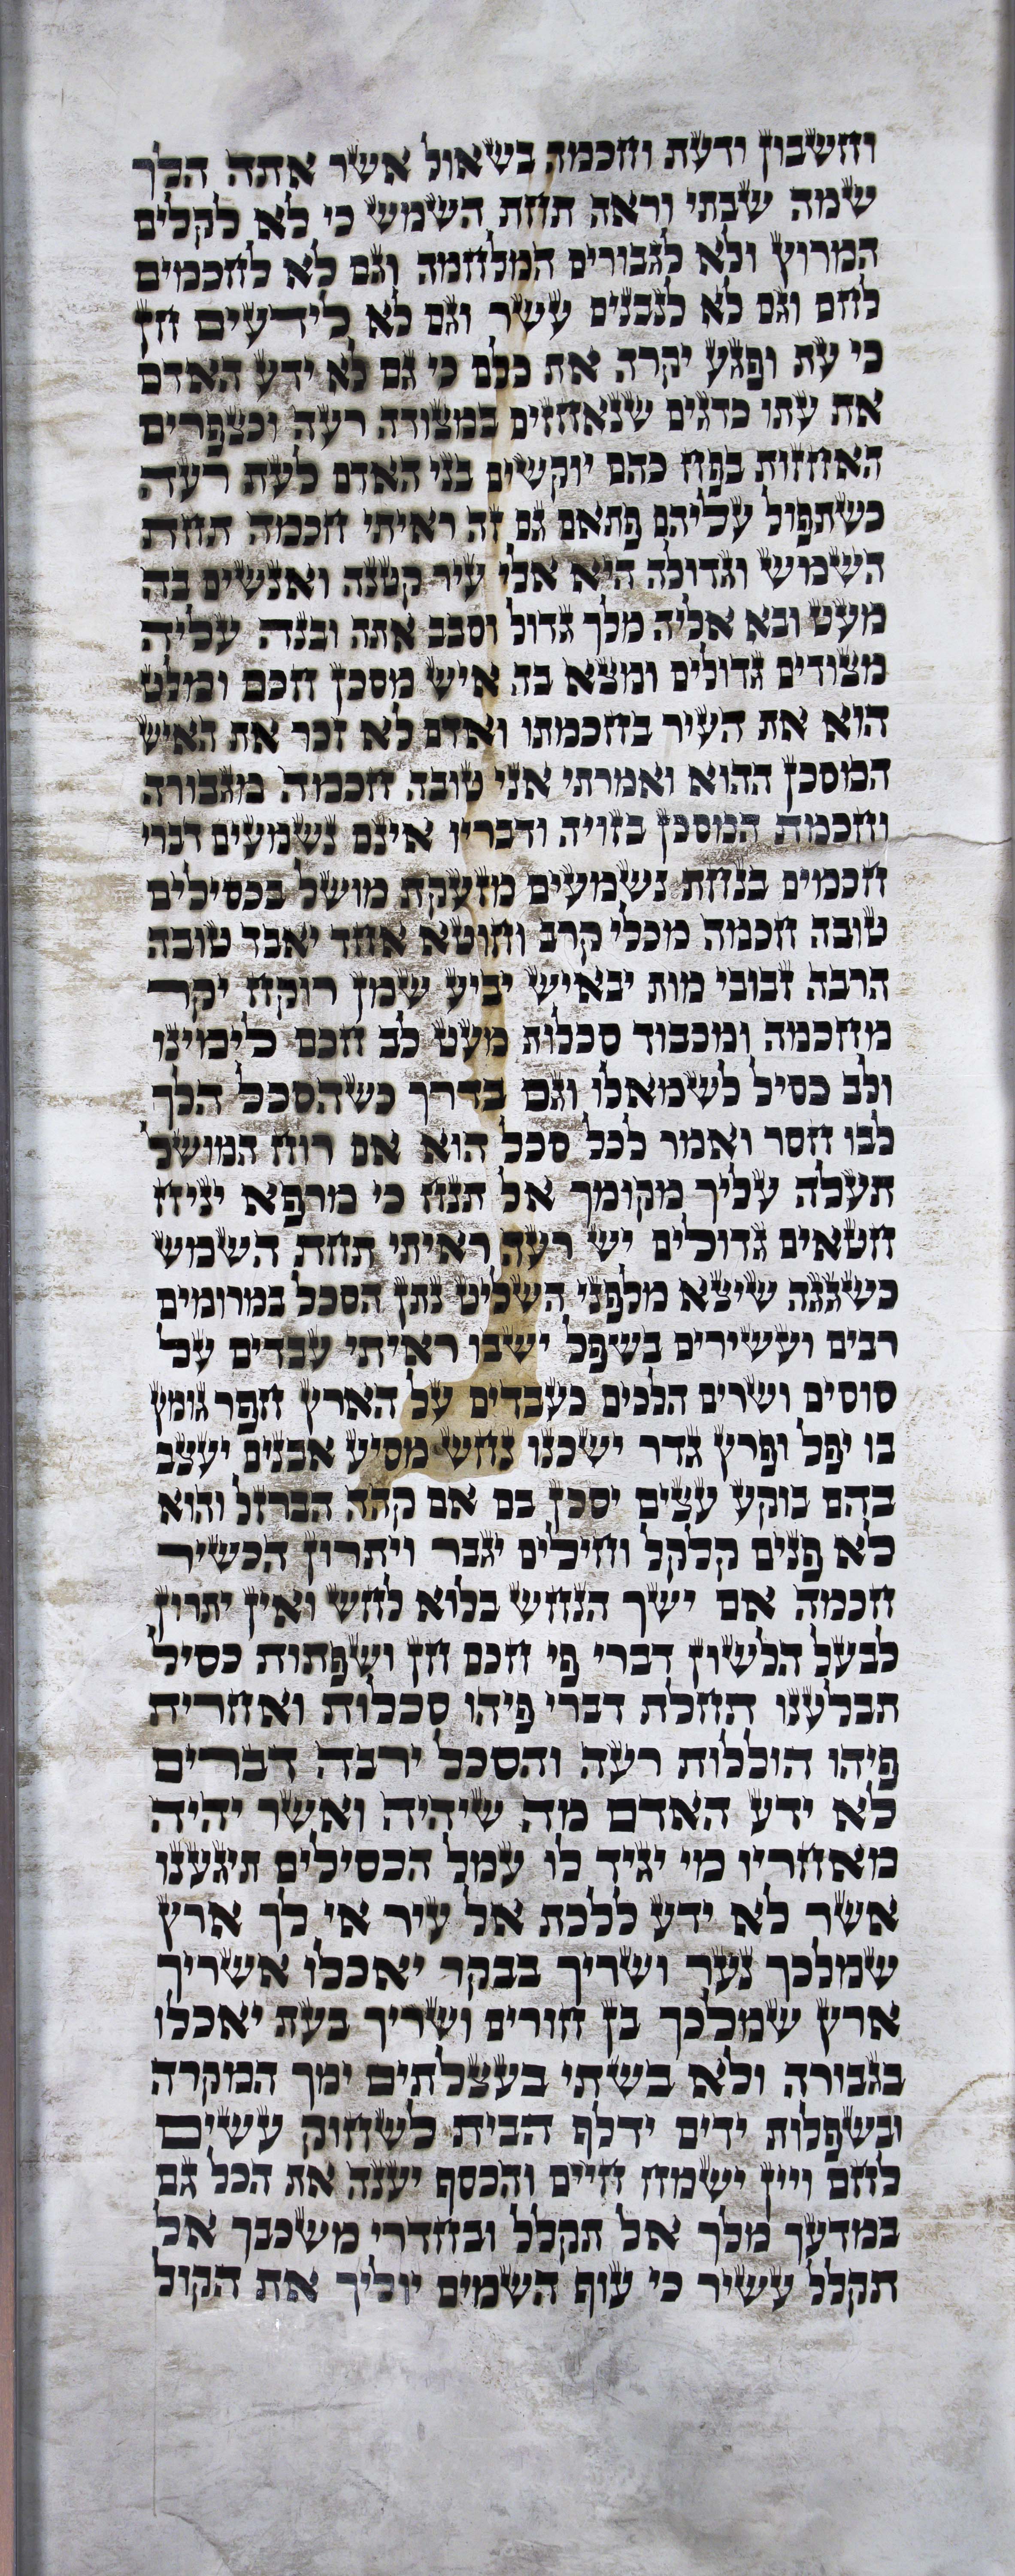 וחשבון ודעת וחכמה בשאול אשר אתה הלך
שמה שבתי וראה תחת השמש כי לא לקלים
המרוץ ולא לגבורים המלחמה וגם לא לחכמים
לחם וגם לא לנבנים עשר וגם לא לידעים חן
כי עת ופגע יקרה את כלם כי גם לא ידע האדם
את עתו כדגים שנאחזים במצודה רעה וכצפרים
האחזות בפח כהם יוקשים בני האדם לעת רעה
כשתפול עליהם פתאם גם זה ראיתי חכמה תחת
השמש וגדולה היא אלי עיר קטנה ואנשים בה
מעט ובא אליה מלך גדול וסבב אתה ובנה עליה
מצודים גדולים ומצא בה איש מסכן חכם ומלט
הוא את העיר בחכמתו ואדם לא זכר את האיש
המסכן ההוא ואמרתי אני טובה חכמה מגבורה
וחכמת המסכן בזויה ודבריו אינם נשמעים דברי
חכמים בנחת נשמעים מזעקת מושל בכסילים
טובה חכמה מכלי קרב וחוטא אחד יאבד טובה
הרבה זבובי מות יבאיש יביע שמן רוקח יקר
מחכמה ומכבוד סכלות מעט לב חכם לימינו
ולב כסיל לשמאלו וגם בדרך כשהסכל הלך
לבו חסר ואמר לכל סכל הוא אם רוח המושל
תעלה עליך מקומך אל תנח כי מרפא יניח
חטאים גדולים יש רעה ראיתי תחת השמש
כשגגה שיצא מלפני השליט נתן הסכל במרומים
רבים ועשירים בשפל ישבו ראיתי עבדים על
סוסים ושרים הלכים כעבדים על הארץ חפר גומץ
בו יפל ופרץ גדר ישכנו נחש מסיע אבנים יעצב
בהם בוקע עצים יסכן בם אם קהה הברזל והוא
לא פנים קלקל וחילים יגבר ויתרון הכשיר
חכמה אם ישך הנחש בלוא לחש ואין יתרון
לבעל הלשון דברי פי חכם חן ושפתות כסיל
תבלענו תחלת דברי פיהו סכלות ואחרית
פיהו הוללות רעה והסכל ירבה דברים
לא ידע האדם מה שיהיה ואשר יהיה
מאחריו מי יגיד לו עמל הכסילים תיגענו
אשר לא ידע ללכת אל עיר אי לך ארץ
שמלכך נער ושריך בבקר יאכלו אשריך
ארץ שמלכך בן חורים ושריך בעת יאכלו
בגבורה ולא בשתי בעצלתים ימך המקרה
ובשפלות ידים ידלף הבית לשחוק עשים
לחם ויין ישמח חיים והכסף יענה את הכל גם
במדעך מלך אל תקלל ובחדרי משכבך אל
תקלל עשיר כי עוף השמים יוליך את הקול